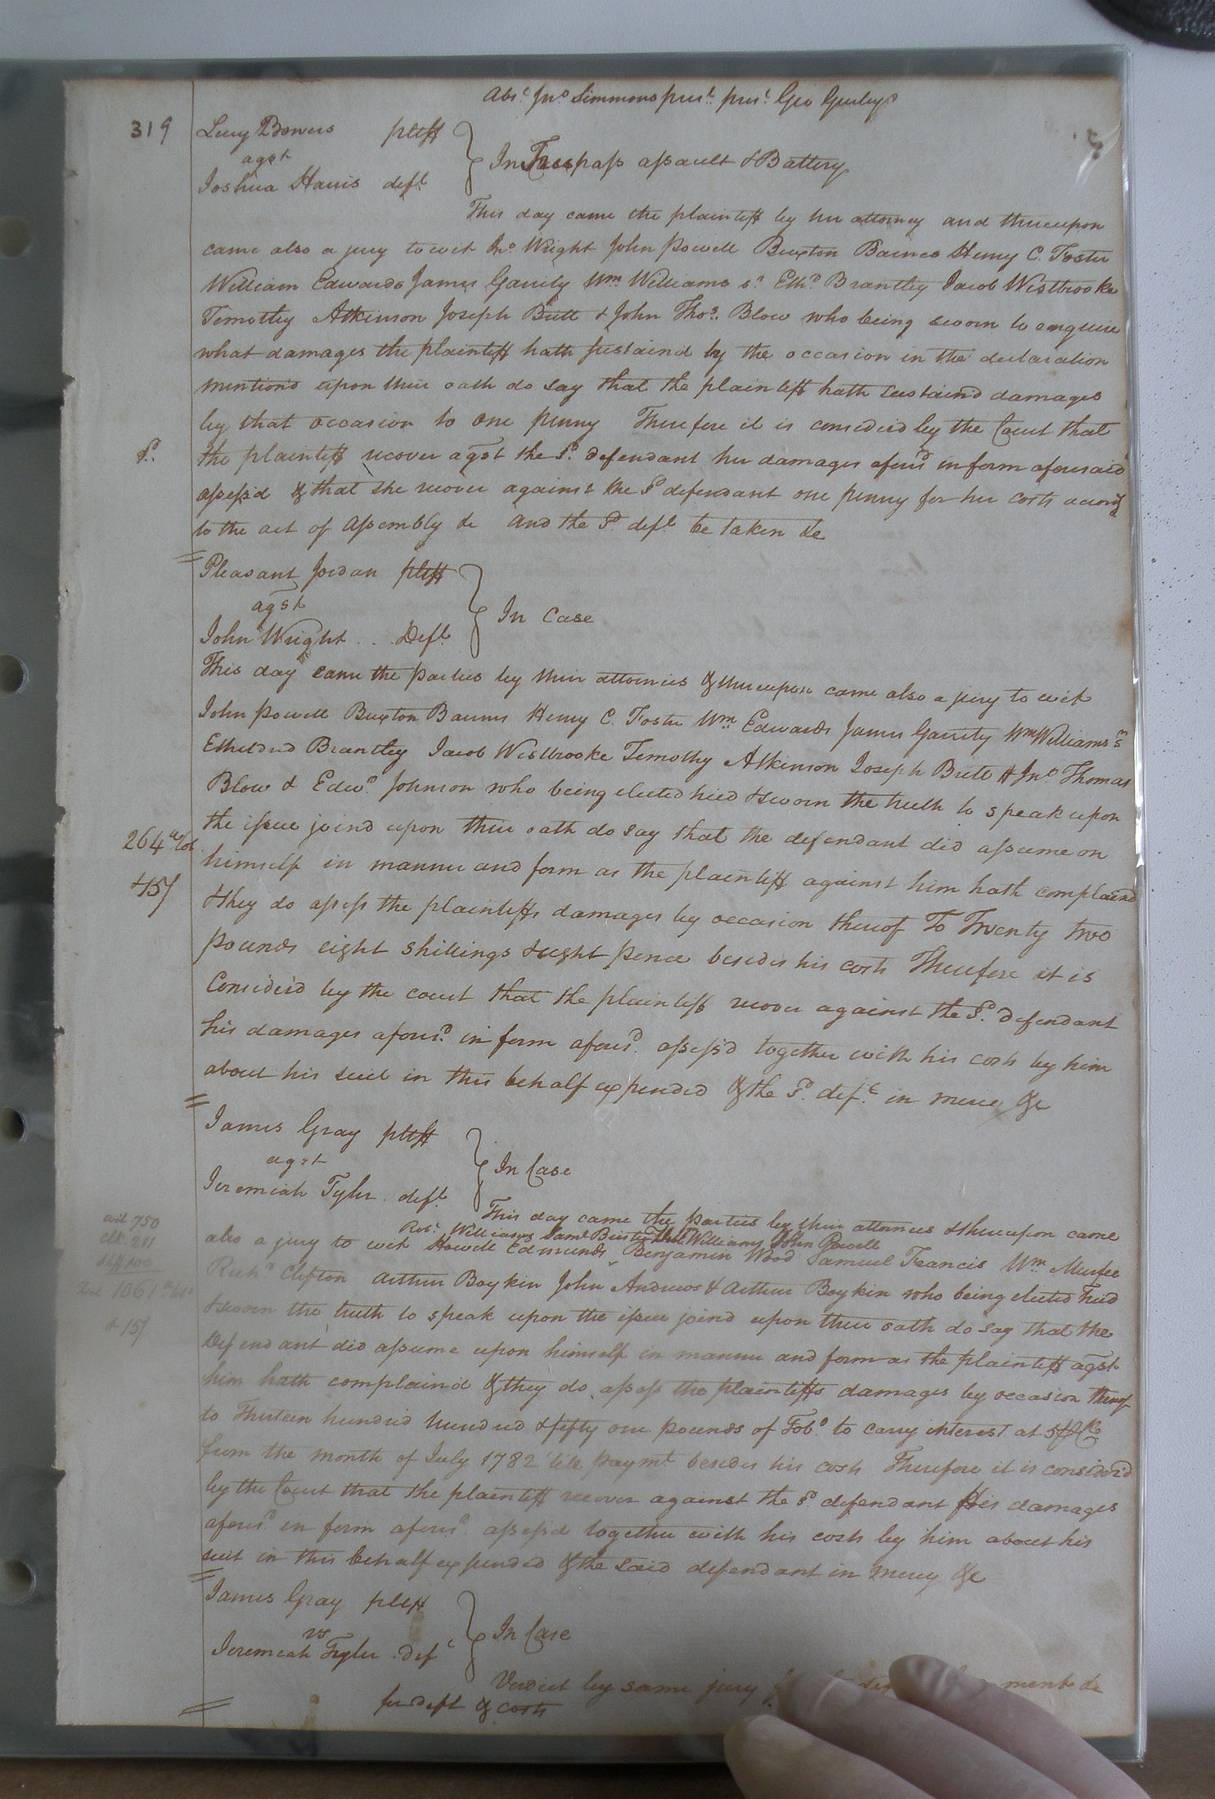 Absᵗ Jnᵒ Simmons presᵗ presᵗ Geo Gurley
319
Lucy Bowers pltff
agst
Joshua Harris deft
In Tresspass assault & Battery
This day came the plaintiff by her attorney and thereupon
came also a jury to wit Jnᵒ Wright John Powell Buxton Barnes Henry C. Foster
William Edwards James Garrity Wm Williams sʳ Ethᵈ Brantley Jacob Westbrooke
Timothy Atkinson Joseph Britt & John Thoˢ Blow who being sworn to enquire
what damages the plaintiff hath sustaind by the occasion in the declaration
mention'd upon their oath do say that the plaintiff hath sustaind damages
by that occasion to one penny Therefore it is considerd by the Court that
the plaintiff recover agst the sᵈ defendant her damages aforesᵈ in form aforesaid
assess'd & that she recover against the sᵈ defendant one penny for her costs accordᵍ
to the act of Assembly &c And the sᵈ deft be taken &c
Pleasant Jordan pltff
agst
John Wright .. Deft
In Case
This day came the parties by their attornies & thereupon came also a jury to wit
John Powell Buxton Barnes Henry C. Foster Wm Edwards James Garrity Wm Williams sʳ
Etheldred Brantley Jacob Westbrooke Timothy Atkinson Joseph Britt & Jnᵒ Thomas
Blow & Edwᵈ Johnson who being elected tried & sworn the truth to speak upon
the issue joind upon their oath do say that the defendant did assume on
264 ᵗᵒᵇ
himself in manner and form as the plaintiff against him hath complaind
& 15/
& they do assess the plaintiffs damages by occasion thereof To Twenty two
pounds eight shillings & eight pence besides his costs Therefore it is
Consider'd by the court that the plaintiff recover against the sᵈ defendant
his damages aforesᵈ in form aforesᵈ assess'd together with his costs by him
about his suit in this behalf expended & the sᵈ defᵗ in mercy &c
James Gray pltff
agst
Jeremiah Tyler deft
In Case
This day came the parties by their attornies & thereupon came
Robᵗ Williams Saml Williams John Powell
also a jury to wit Howell Edmunds Benjamin Wood Samuel Francis Wm Murfee
wit 750
clk 211
100
1061
& 15/
Richᵈ Clifton Arthur Boykin John Andrews & Arthur Boykin who being elected tried
& sworn the truth to speak upon the issue joind upon their oath do say that the
Defendant did assume upon himself in manner and form as the plaintiff agst
him hath complain'd & they do assess the plaintiffs damages by occasion thereof
to Thirteen hundred hundred & fifty one pounds of Tobᵒ to carry interest at 5 ⅌ Cᵗ
from the month of July 1782 till paymᵗ besides his costs Therefore it is consider'd
by the Court that the plaintiff recover against the sᵈ defendant his damages
aforesᵈ in form aforesᵈ assess'd together with his costs by him about his
suit in this behalf expended & the said defendant in mercy &c
James Gray pltff
vs
Jeremiah Tyler defᵗ
In Case
Verdict by same jury
for deft & costs